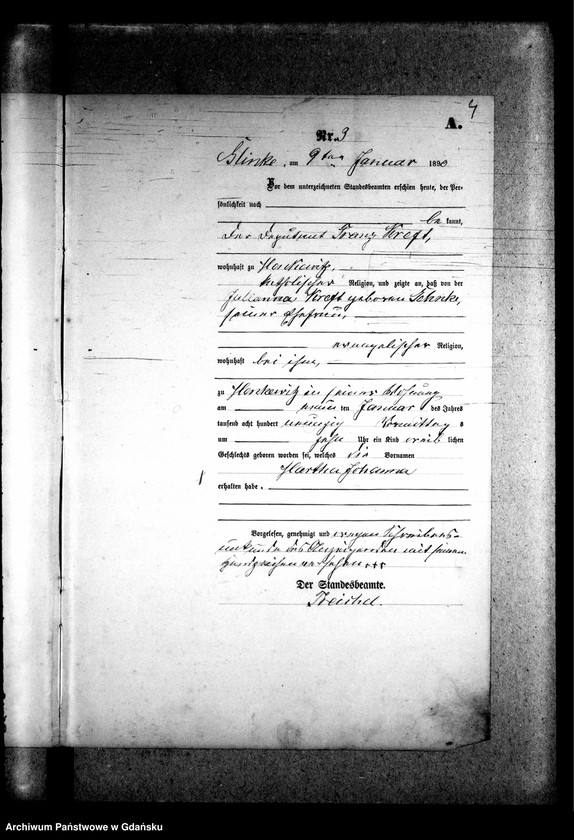 4
A.
Nr. 3
Glinke, am 9ten Januar 1890
Vor dem unterzeichneten Standesbeamten erschien heute, der Per-
sönlichkeit nach
be kannt,
der Deputant Franz Kreft,
wohnhaft zu
katholischer Religion, und zeigte an, daß von der
Julianna Kreft geboren
seiner Ehefrau,
evangelischer Religion,
wohnhaft bei ihm,
zu in seiner Wohnung
am neun ten Januar des Jahres
tausend acht hundert neunzig Vormittag s
um zehn Uhr ein Kind weib lichen
Geschlechts geboren worden sei, welches die Vornamen
Martha Johanna
erhalten habe.
Vorgelesen, genehmigt und wegen Schreibens-
unkunde des Anzeigenden mit seinem
Handzeichen versehen +++
Der Standesbeamte.
Treichel.
Archiwum Państwowe w Gdańsku